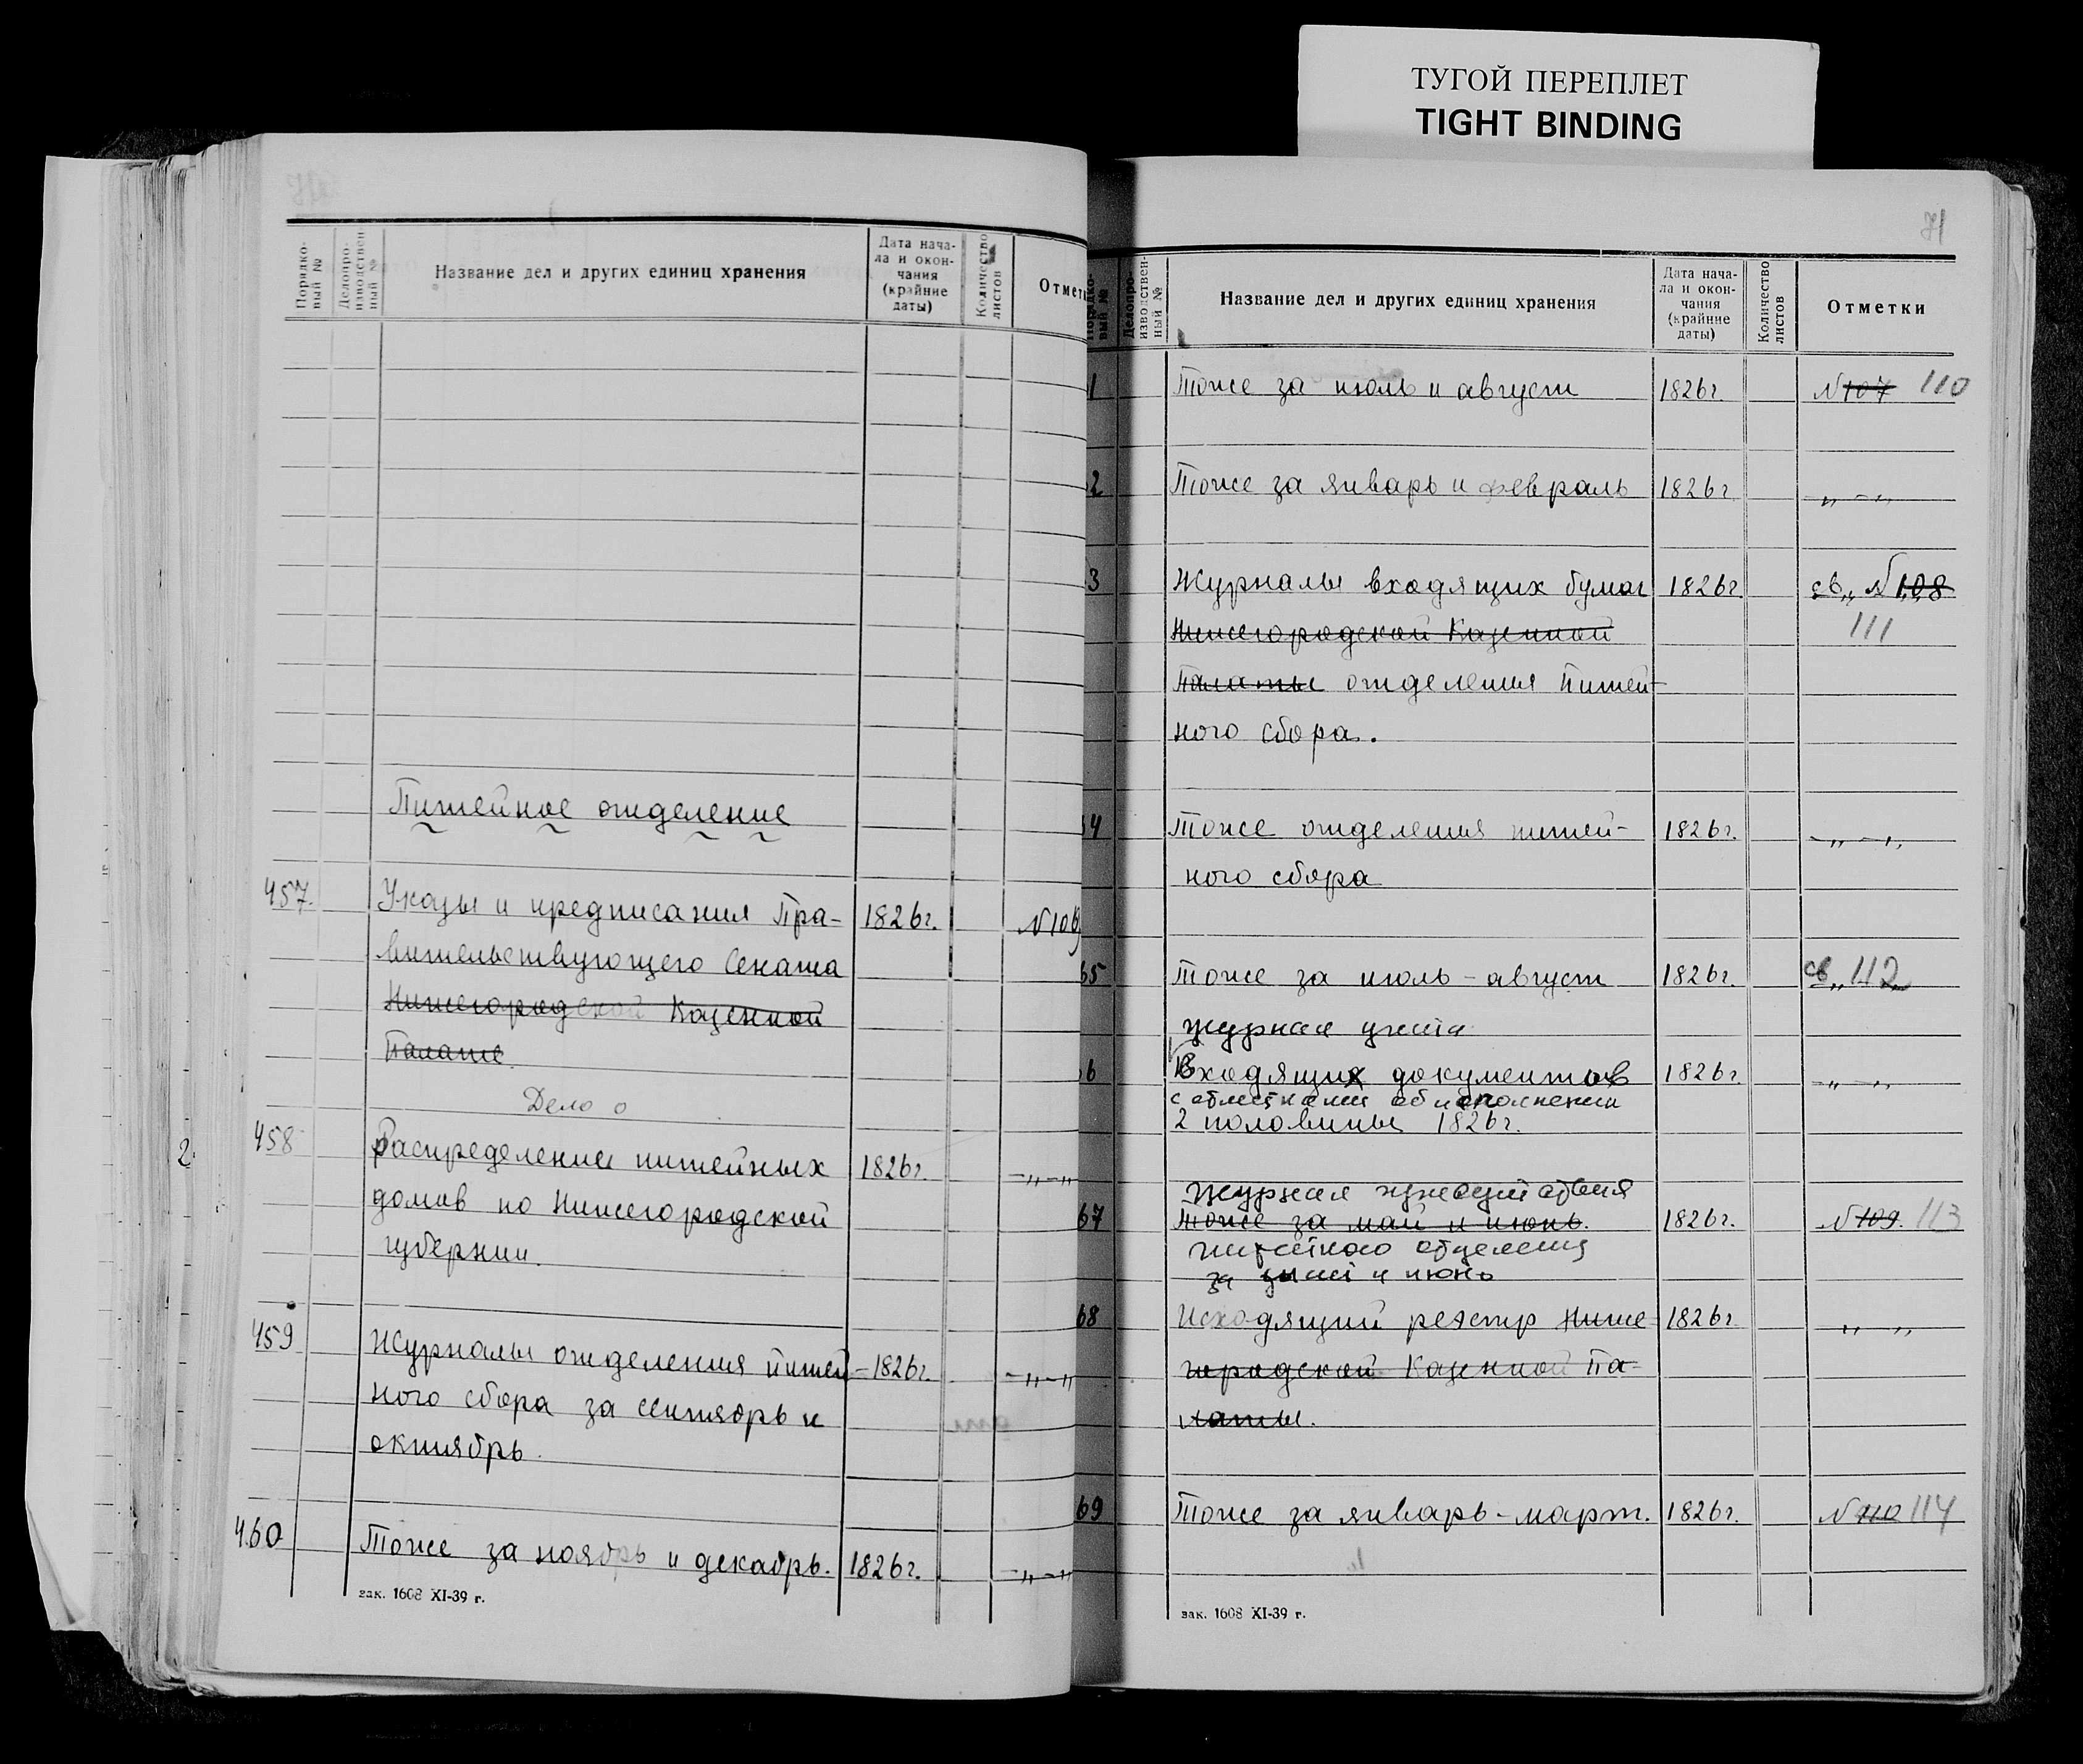 ТУГОЙ ПЕРЕПЛЕТ
TIGHT BINDING
Порядко-
вый №
Делопро-
изводствен-
ный №
Название дел и других единиц хранения
Дата нача-
ла и окон-
чания
(крайние
даты)
Количество
листов
Отметк
Питейное отделение
457. Указы и предписания Пра- 1826г. №109
вительствующего Сената
Нижегородской Казенной
Палате
Дело о
2. 458 Распределение питейных 1826г. -„-„
домов по Нижегородской
губернии.
459 Журналы отделения питей- 1826г. -„-„
ного сбора за сентябрь и
октябрь.
460 Тоже за ноябрь и декабрь. 1826г. -„-„
зак. 1608 XI-39 г.
71
Порядко-
вый №
Делопро-
изводствен-
ный №
Название дел и других единиц хранения
Дата нача-
ла и окон-
чания
(крайние
даты)
Количество
листов
Отметки
1 Тоже за июль и август 1826г. №107 110
2 Тоже за январь и февраль 1826г. -„-„
3 Журналы входящих бумаг 1826г св„ №108
Нижегородской Казенной 111
Палаты отделения питей-
ного сбора.
4 Тоже отделения питей- 1826г. -„-„
ного сбора
65 Тоже за июль - август 1826г. св„ 112
журнал учета
6 Входящих документов 1826г. -„-„
с отметками об исполнении
2 половины 1826г.
Журнал присутствия
67 Тоже за май и июнь. 1826г. №109. 113
питейного отделения
за май и июнь
68 Исходящий реестр Ниже- 1826г. „ „
городской Казенной Па-
латы.
69 Тоже за январь-март. 1826г. №110 114
зак. 1608 XI-39 г.